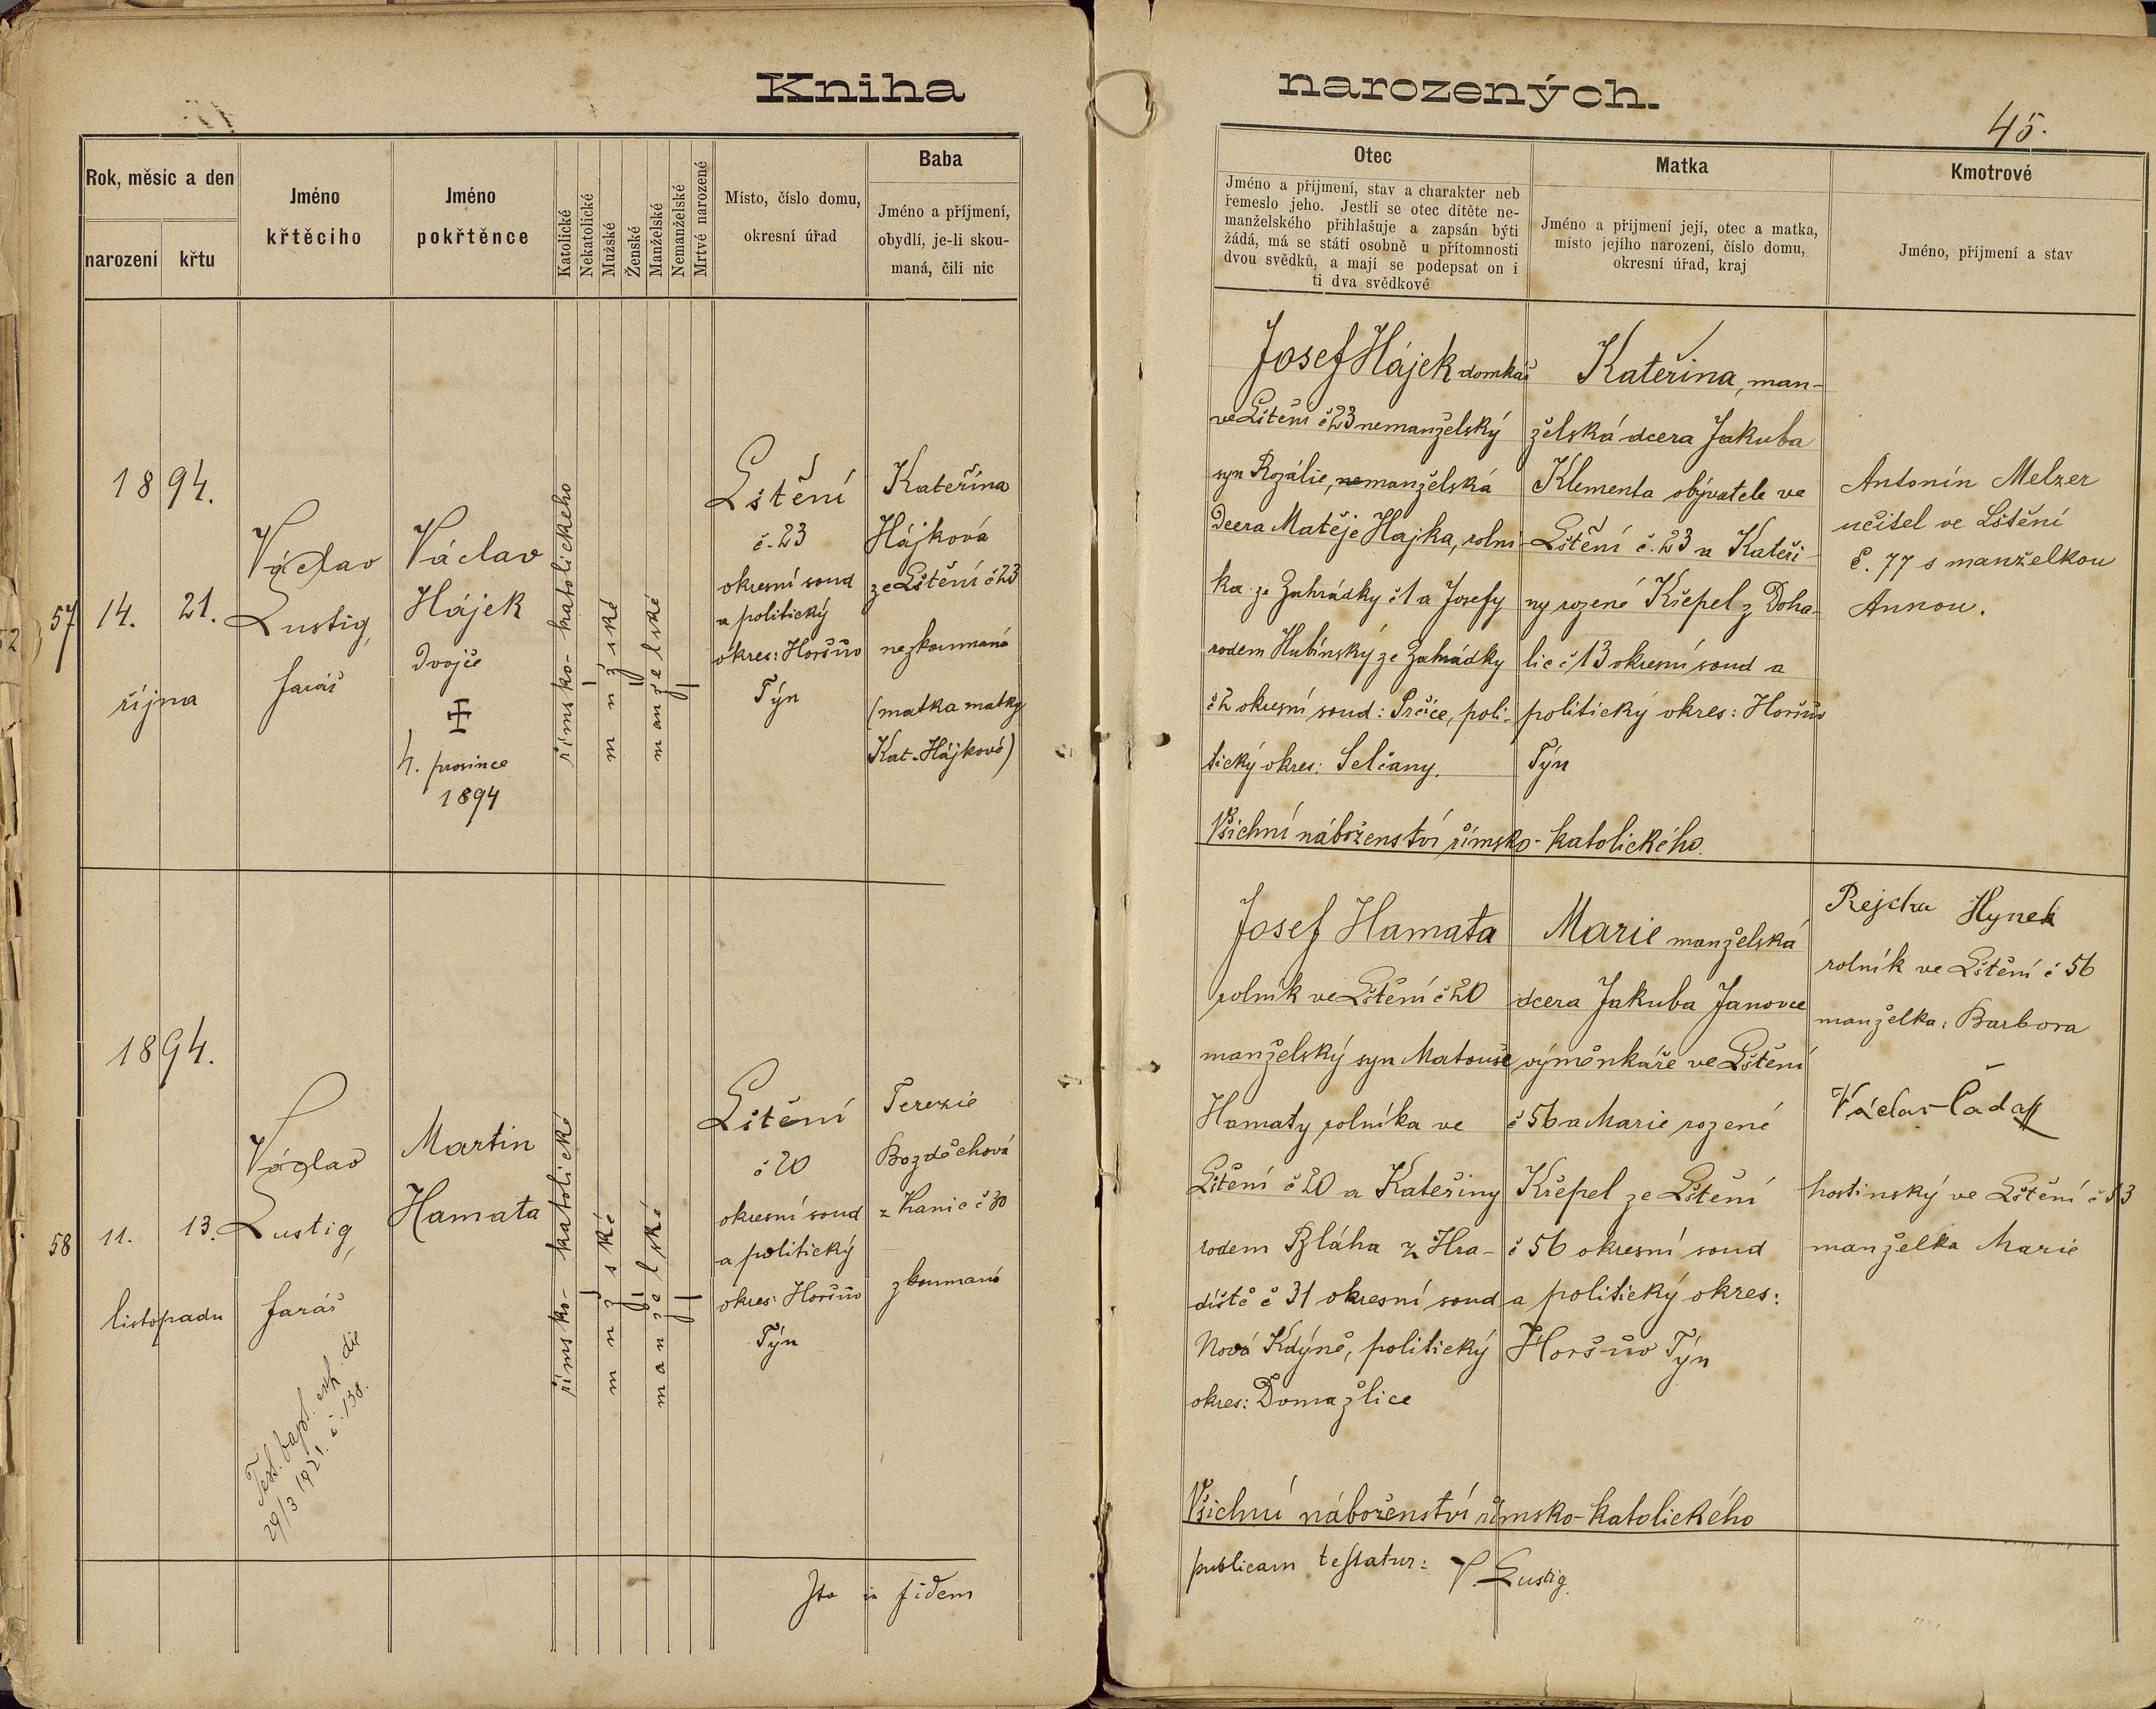 Kniha narozených.
45.
Rok, měsíc a den
narození
křtu
Jméno
křtěcího
Jméno
pokřtěnce
Katolické
Nekatolické
Mužské
Ženské
Manželské
Nemanželské
Mrtvé narozené
Místo, číslo domu,
okresní úřad
Baba
Jméno a příjmení,
obydlí, je-li skou-
maná, čili nic
Otec
Jméno a příjmení, stav a charakter neb
řemeslo jeho. Jestli se otec dítěte ne-
manželského přihlašuje a zapsán býti
žádá, má se státi osobně u přítomnosti
dvou svědků, a mají se podepsat on i
ti dva svědkové
Matka
Jméno a příjmení její, otec a matka,
místo jejího narození, číslo domu,
okresní úřad, kraj
Kmotrové
Jméno, příjmení a stav
57
1894.
14.
21.
října
Václav
Lustig,
farář
Václav
Hájek
dvojče
4. prosince
1894
římsko-katolického
mužské
manželské
Lštění
č. 23
okresní soud
a politický
okres: Horšův
Týn
Kateřina
Hájková
ze Lštění č 23
nezkoumaná
(matka matky
Kat. Hájkové)
Josef Hájek domkář
ve Lštění č 23 nemanželský
syn Rozálie, nemanželská
dcera Matěje Hajka, rolní-
ka ze Zahrádky č 1 a Josefy
rodem Hubínský ze Zahrádky
č 2 okresní soud: Sečice, poli-
tický okres: Selčany.
Kateřina, man-
želská dcera Jakuba
Klementa obývatele ve
Lštění č. 23 a Kateři-
ny rozené Křepel z Doha-
lic č 13 okresní soud a
politický okres: Horšův
Týn
Všichni náboženství římsko-katolického.
Antonín Melzer
učitel ve Lštění
č. 77 s manželkou
Annou.
58
1894.
11.
13.
listopadu
Václav
Lustig,
farář
Test. bapt. exh. die
29/3 1921. č. 138.
Martin
Hamata
římsko-katolické
mužské
manželské
Lštění
č 20
okresní soud
a politický
okres: Horšův
Týn
Terezie
Bozděchová
z Kanic č 30
zkoumaná
Josef Hamata
rolník ve Lštění č 20
manželský syn Matouše
Hamaty rolníka ve
Lštění č 20 a Kateřiny
rodem Bláha z Hra-
diště č 31 okresní soud
Nová Kdýně, politický
okres: Domažlice
Marie manželská
dcera Jakuba Janovce
výměnkáře ve Lštění
č 56 a Marie rozené
Křepel ze Lštění
č 56 okresní soud
a politický okres:
Horšův Týn
Rejcha Hynek
rolník ve Lštění č 56
manželka: Barbora
Václav Čada
hostinský ve Lštění č 53
manželka Marie
Všichni náboženství římsko-katolického
Ita in fidem publicam testatur: V. Lustig.